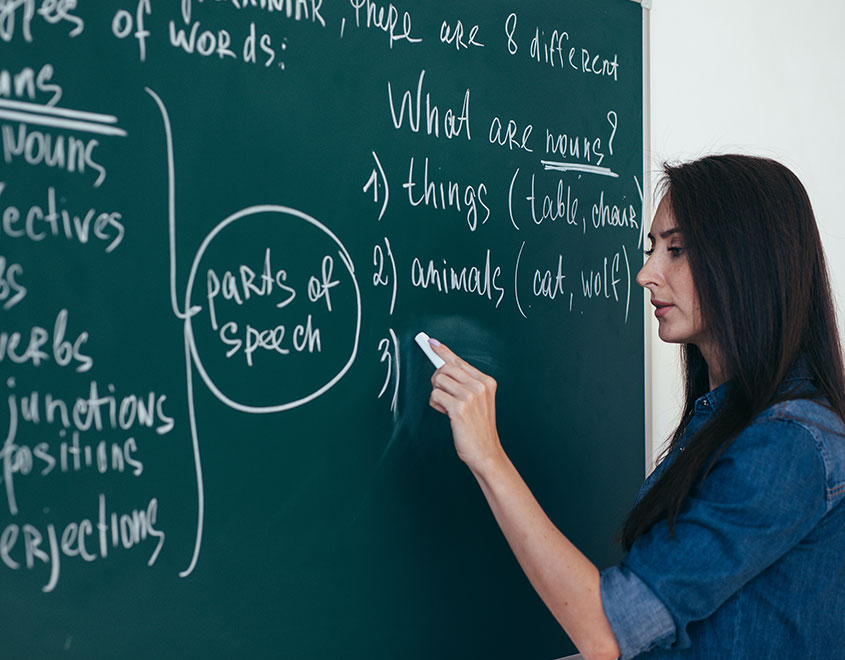 there are 8 different
ypes of words:
uns
nouns
jectives
bs
verbs
junctions
positions
erjections
parts of
speech
What are nouns?
1) things (table, chair)
2) animals (cat, wolf)
3)